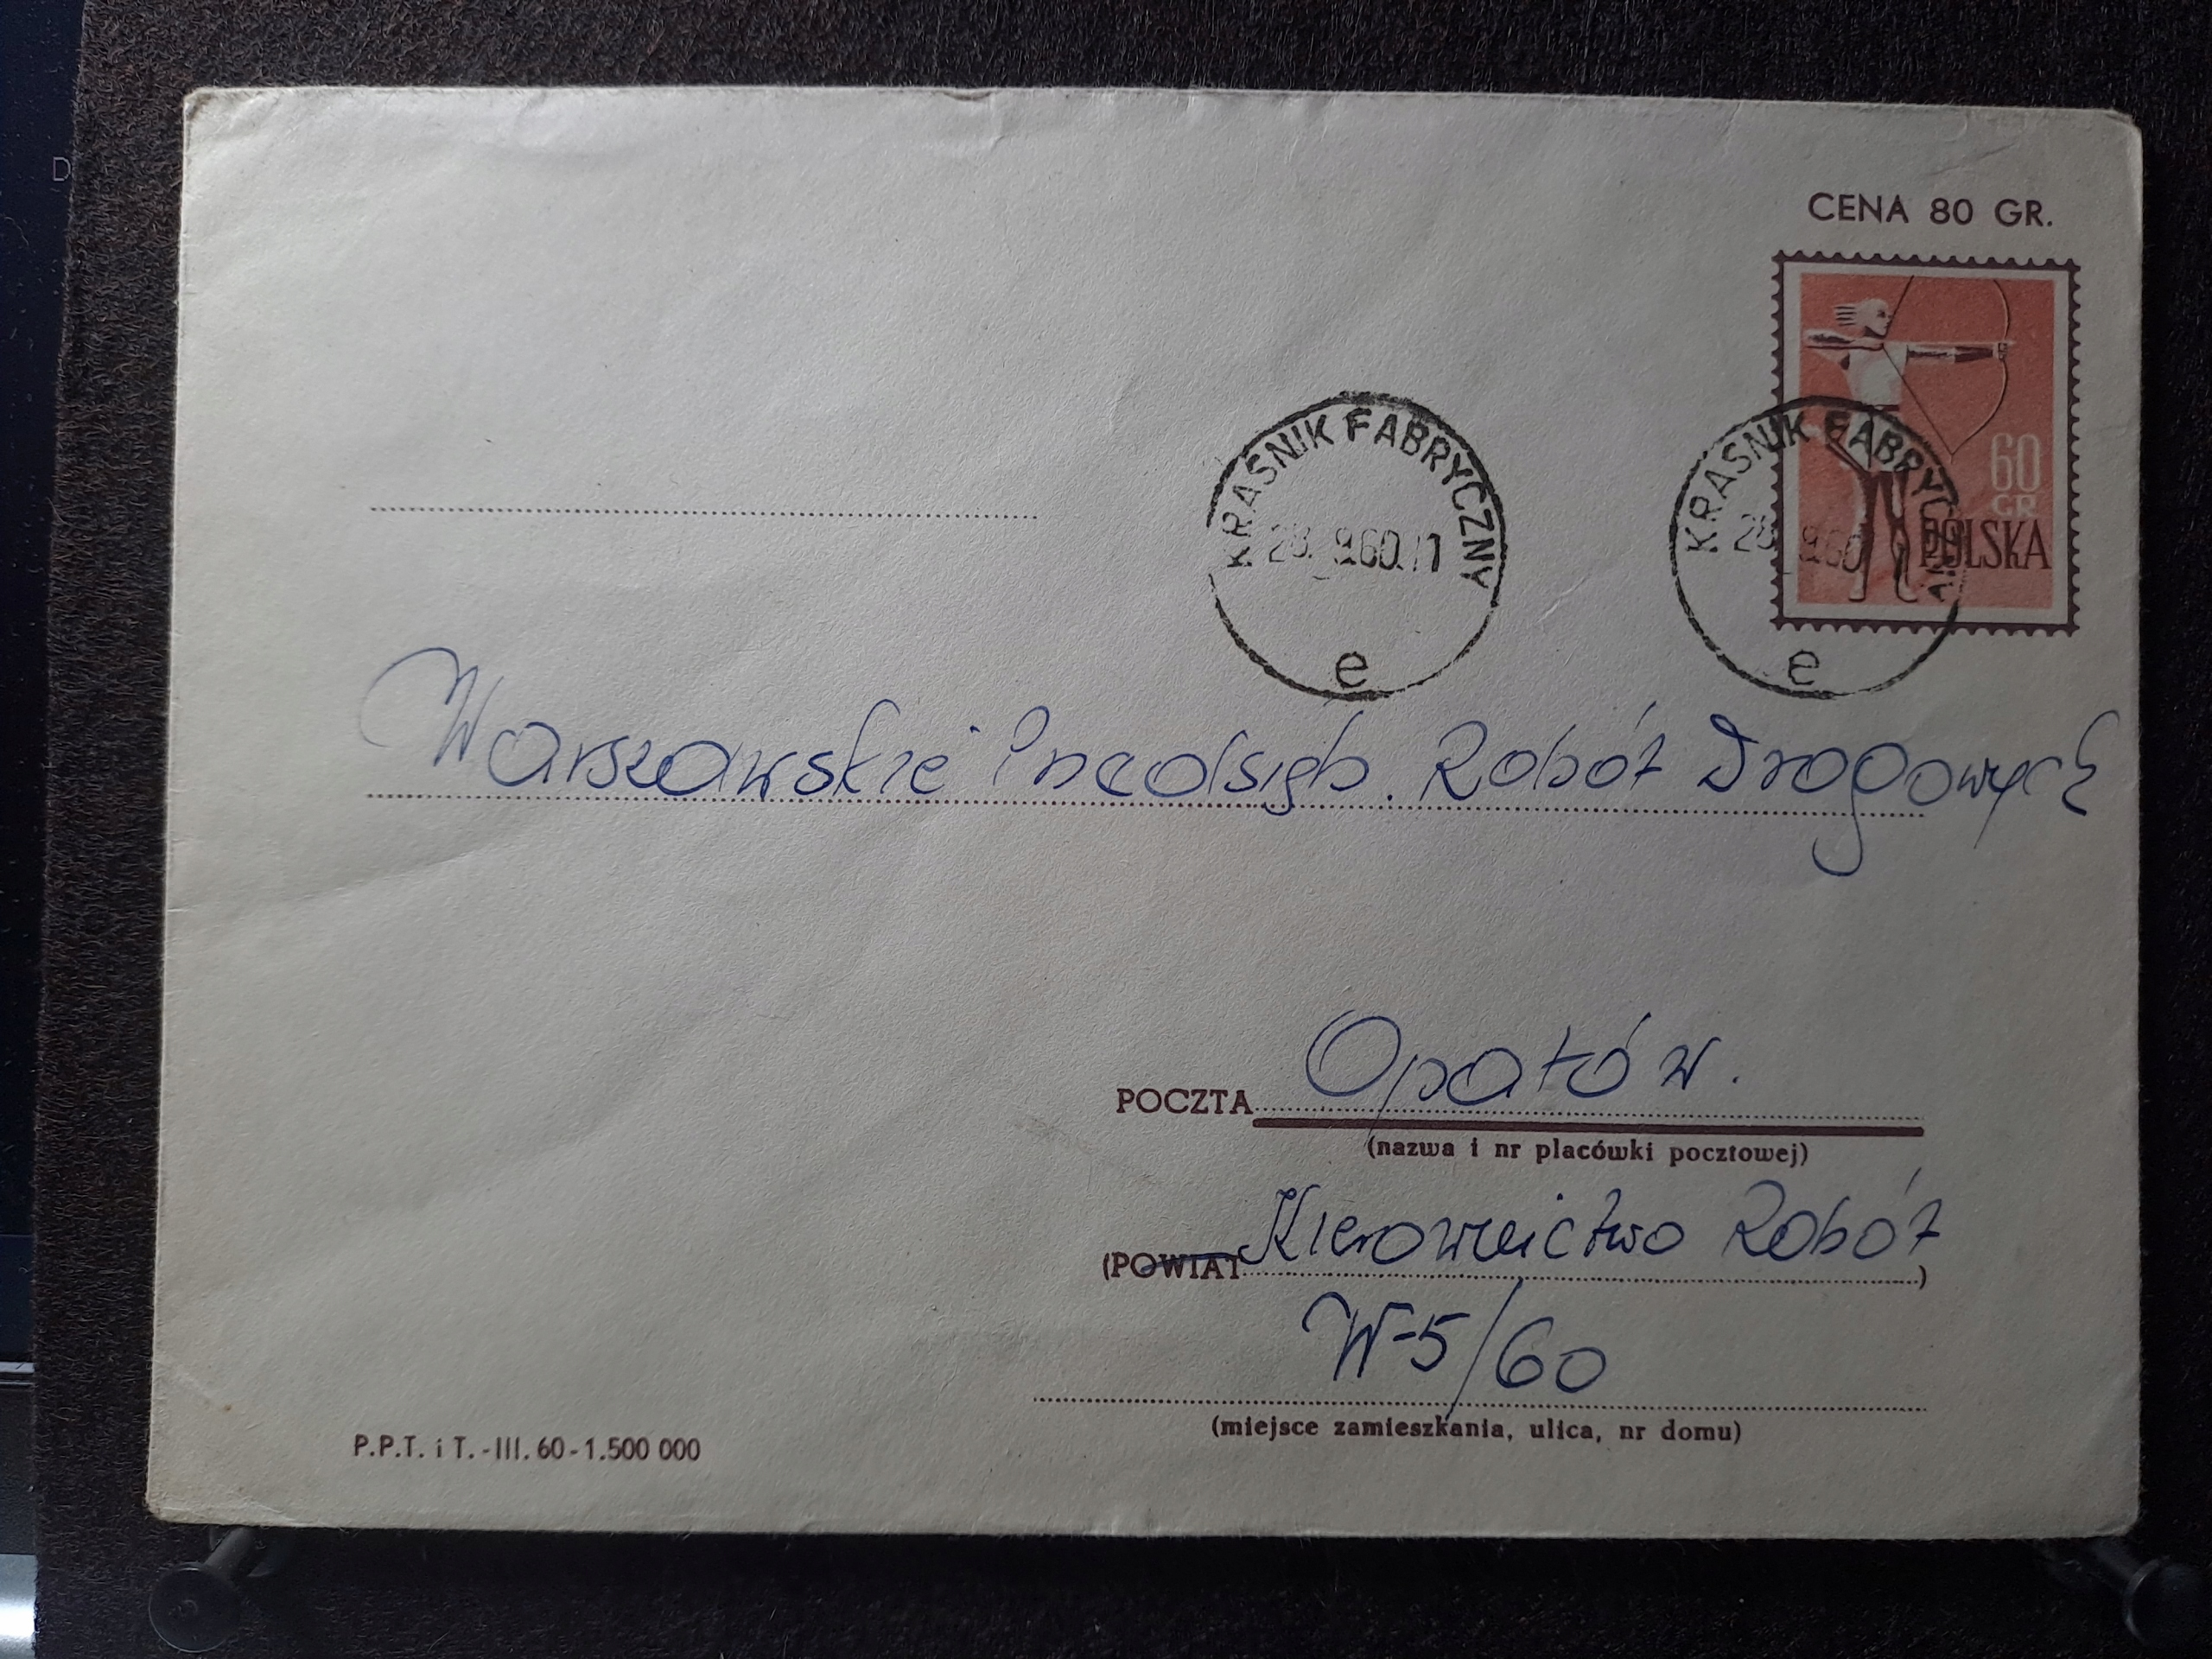 CENA 80 GR.
60
GR
POLSKA
KRASNIK FABRYCZNY
28. 9.60.11
e
KRASNIK FABRYCZNY
28. 9.60
e
Warszawskie Przedsięb. Robót Drogowych
POCZTA Opatów.
(nazwa i nr placówki pocztowej)
(POWIAT Kierownictwo Robót)
W-5/60
(miejsce zamieszkania, ulica, nr domu)
P.P.T. i T.-III.60-1.500 000